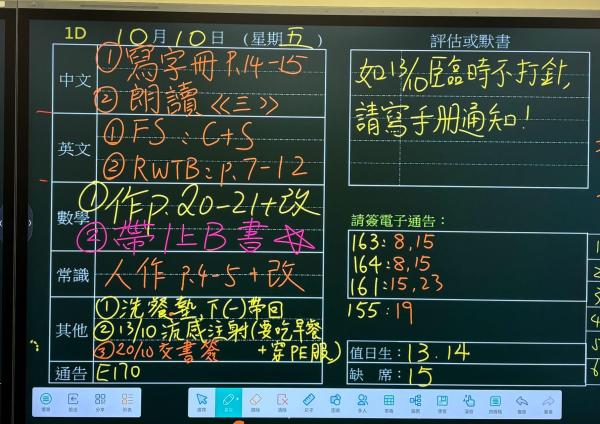 1D 10月10日 (星期五)
中文
①寫字冊 P.14-15
②朗讀《三》
英文
①FS:C+S
②RWTB:p.7-12
數學
①作p.20-21+改
②帶1上B書☆
常識
人作 p.4-5+改
其他
①洗餐墊,下(一)帶回
②13/10 流感注射(要吃早餐
+穿PE服)
③20/10交書簽
通告
E170
評估或默書
如13/10臨時不打針,
請寫手册通知!
請簽電子通告:
163:8,15
164:8,15
161:15,23
155:19
值日生:13.14
缺 席:15